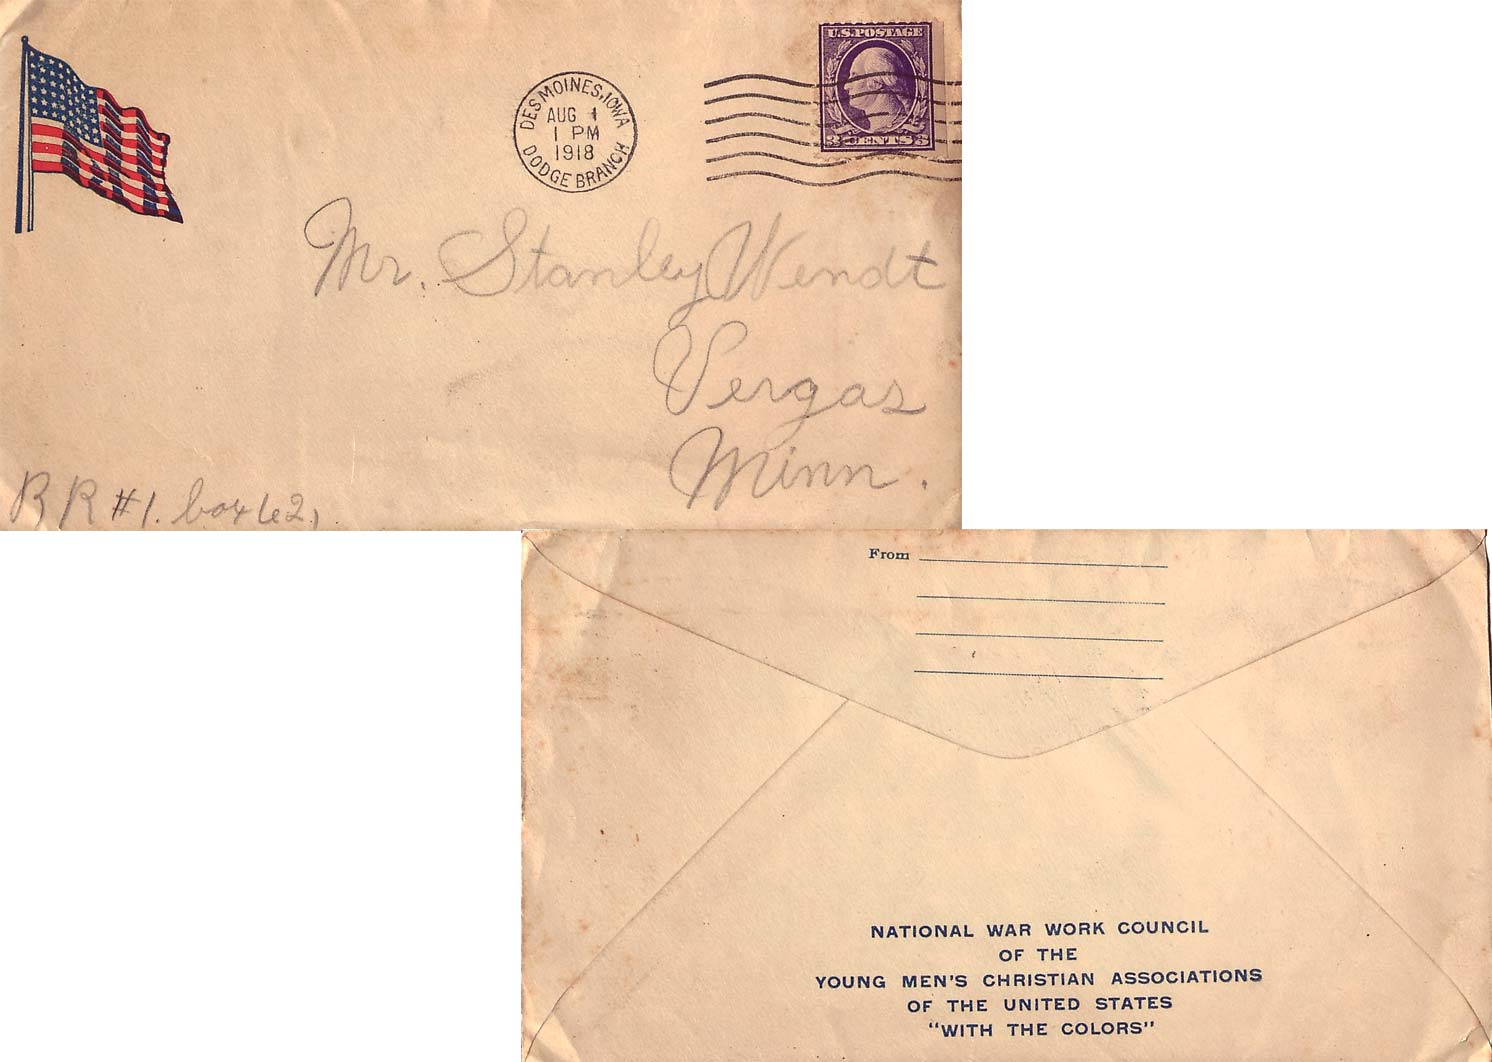 U.S.POSTAGE
3 CENTS 3
DES MOINES, IOWA
AUG 1
1 PM
1918
DODGE BRANCH
Mr. Stanley Wendt
Vergas
Minn.
R R #1. box 62,
From
NATIONAL WAR WORK COUNCIL
OF THE
YOUNG MEN'S CHRISTIAN ASSOCIATIONS
OF THE UNITED STATES
"WITH THE COLORS"